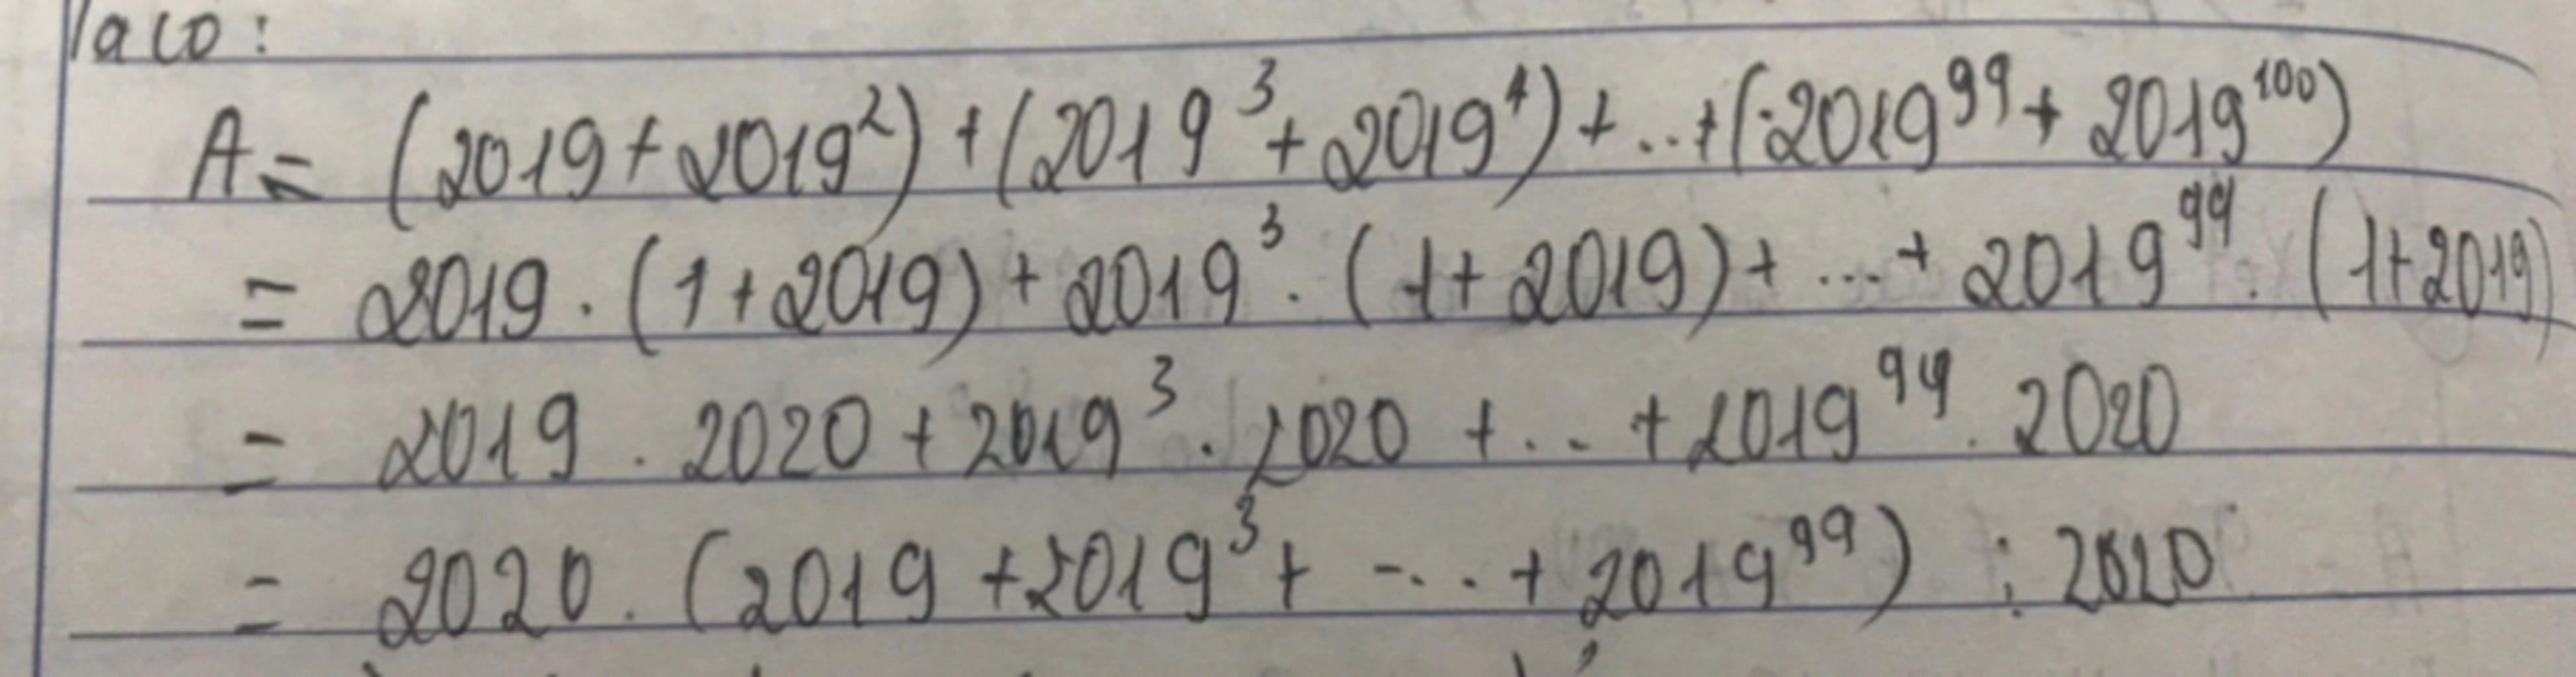 Ta có:
A = (2019 + 2019²) + (2019³ + 2019⁴) + .. + (2019⁹⁹ + 2019¹⁰⁰)
= 2019 . (1 + 2019) + 2019³ . (1 + 2019) + ... + 2019⁹⁹ . (1 + 2019)
= 2019 . 2020 + 2019³ . 2020 + ... + 2019⁹⁹ . 2020
= 2020 . (2019 + 2019³ + .... + 2019⁹⁹) ⋮ 2020